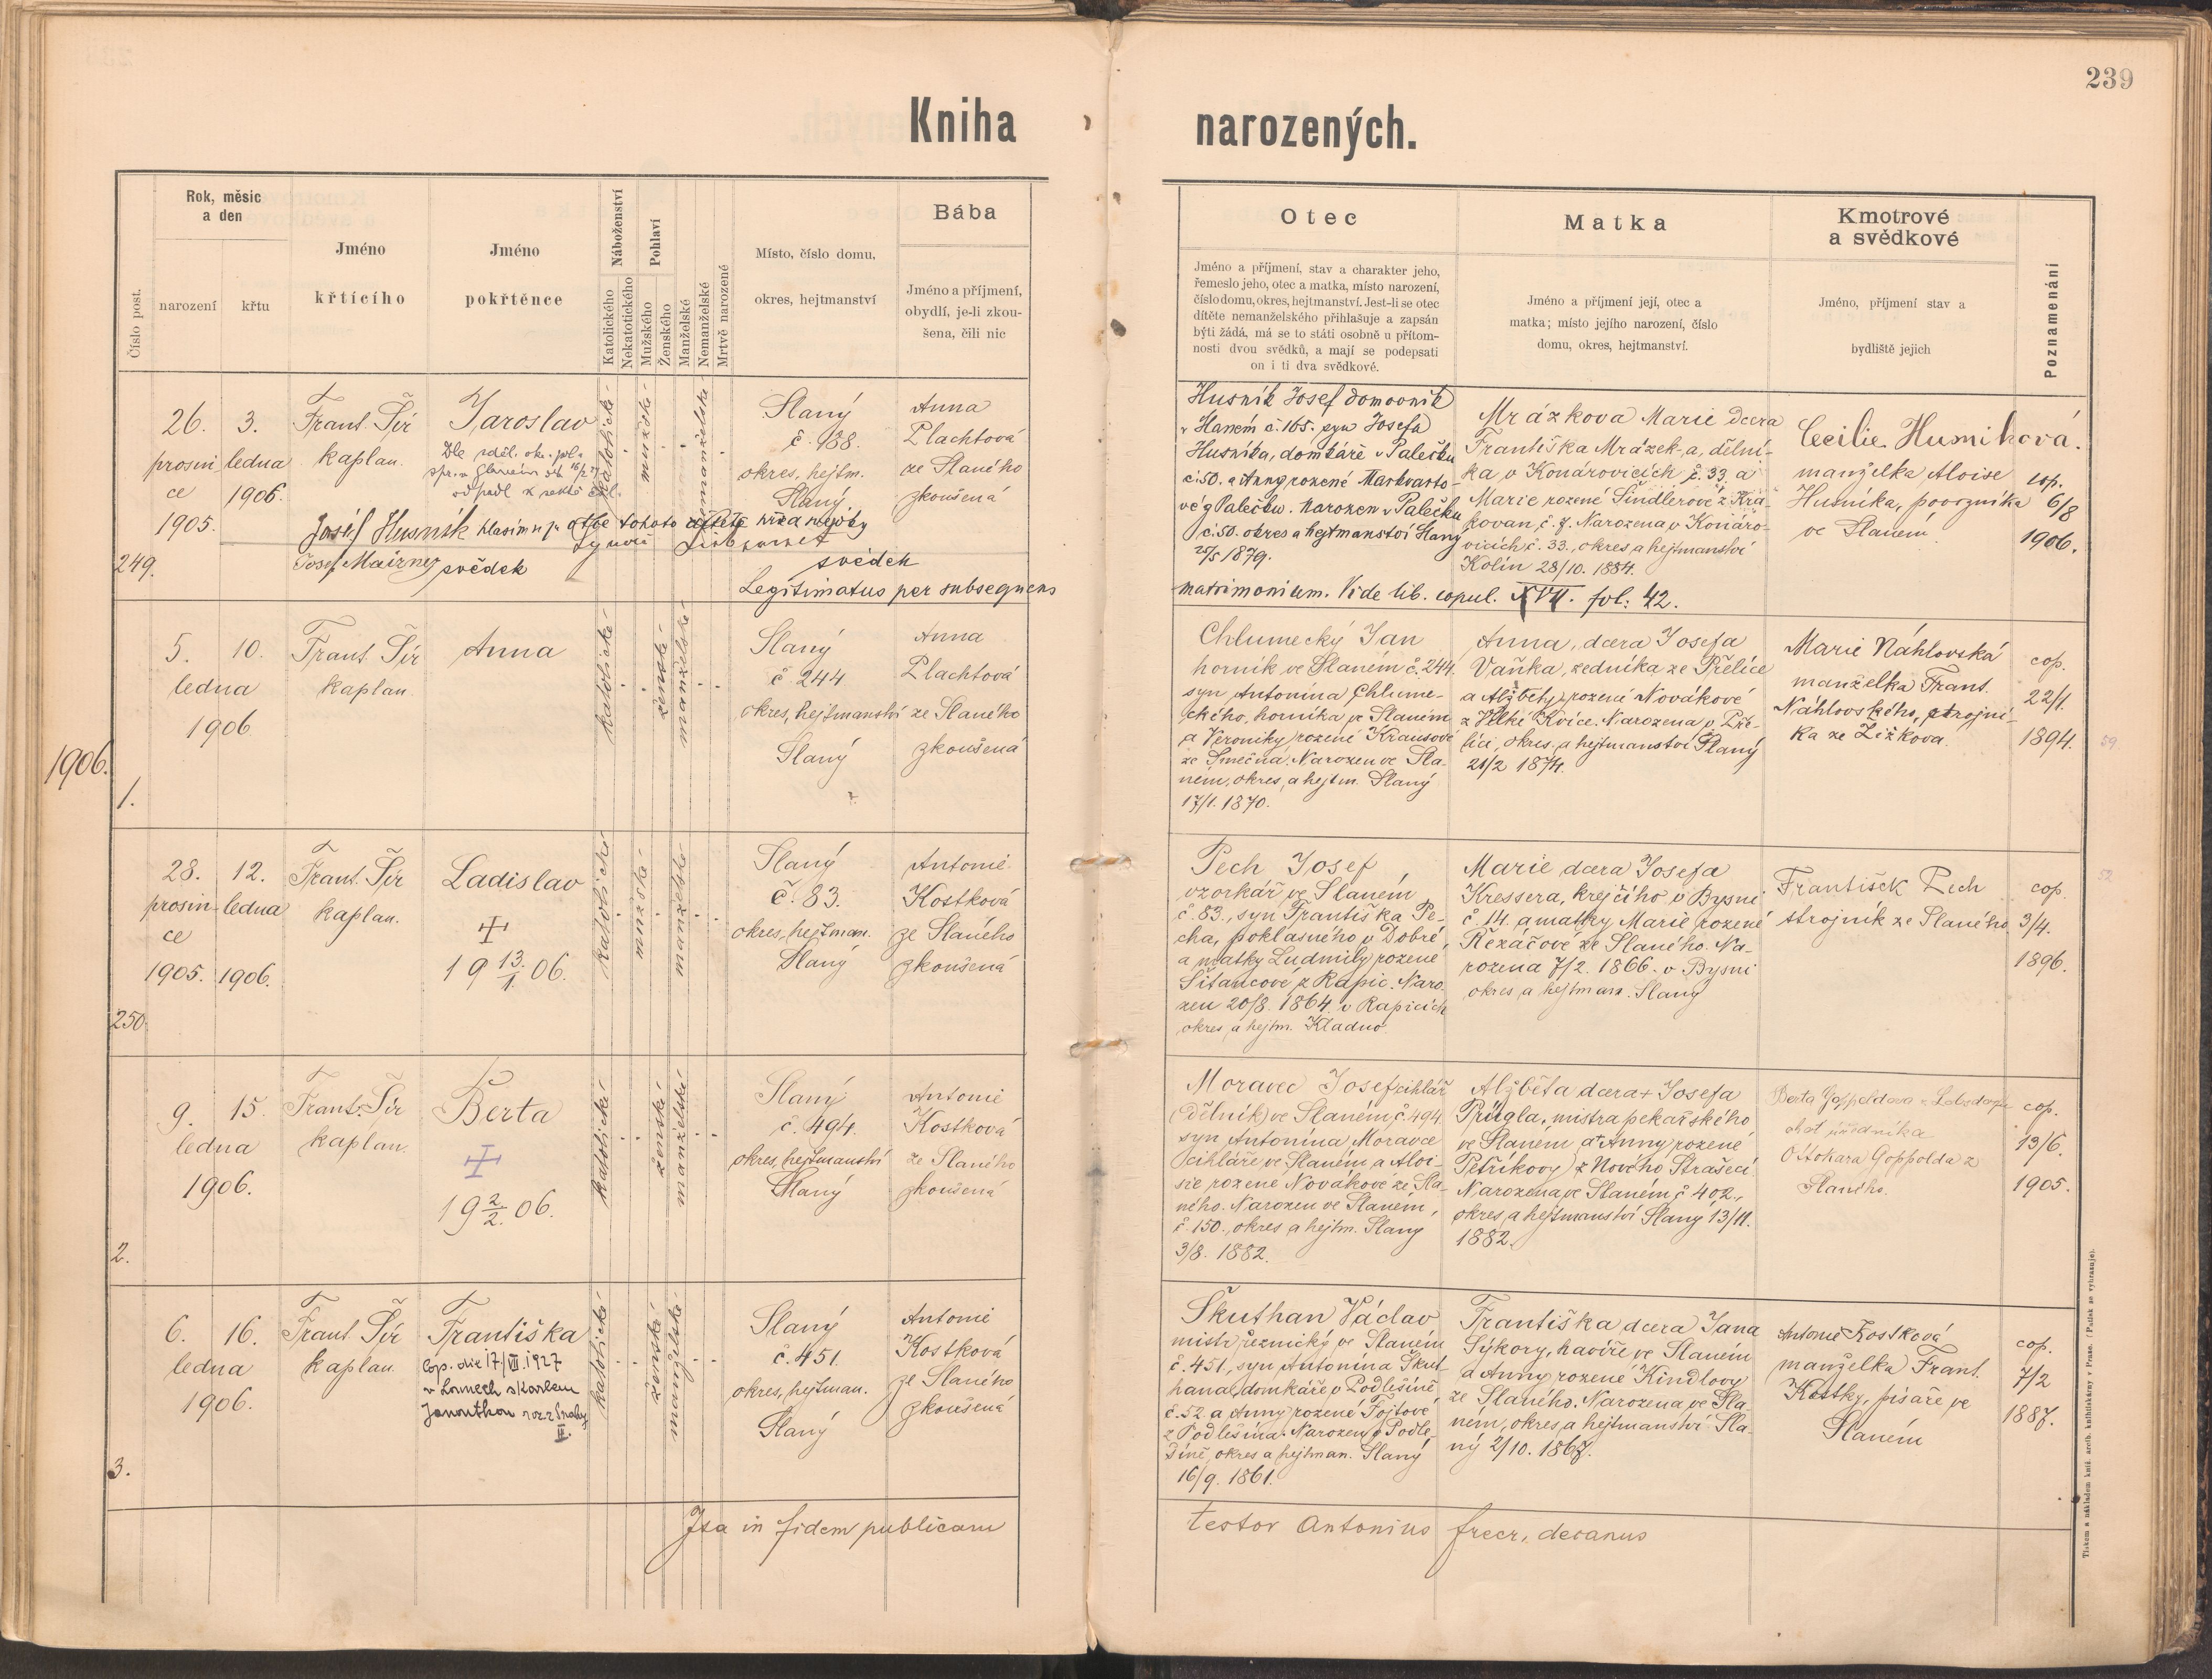 239
Kniha narozených.
Číslo post.
Rok, měsíc
a den
narození
křtu
Jméno
křtícího
Jméno
pokřtěnce
Náboženství
Katolického
Nekatolického
Pohlaví
Mužského
Ženského
Manželské
Nemanželské
Mrtvě narozené
Místo, číslo domu,
okres, hejtmanství
Bába
Jméno a příjmení,
obydlí, je-li zkou-
šena, čili nic
Otec
Jméno a příjmení, stav a charakter jeho,
řemeslo jeho, otec a matka, místo narození,
číslo domu, okres, hejtmanství. Jest-li se otec
dítěte nemanželského přihlašuje a zapsán
býti žádá, má se to státi osobně u přítom-
nosti dvou svědků, a mají se podepsati
on i ti dva svědkové.
Matka
Jméno a příjmení její, otec a
matka; místo jejího narození, číslo
domu, okres, hejtmanství.
Kmotrové
a svědkové
Jméno, příjmení stav a
bydliště jejich
Poznamenání
249.
26.
prosin
ce
1905.
3.
ledna
1906.
Frant. Šír
kaplan.
Jaroslav
katolické
mužské
nemanželské
Slaný
č. 938.
okres, hejtm.
Slaný
Anna
Plachtová
ze Slaného
zkoušená
Josef Husník hlásím se za otce tohoto dítěte
svědek
svědek
Legitimatus per subsequens
matrimonium. Vide lib. copul. XVII. fol: 42.
Husník Josef domovník
v Slaném č. 165. syn Josefa
Husníka, domkáře v Palečku
č. 50. a Anny rozené Markvarto-
vé z Palečku. Narozen v Palečku
č. 50. okres a hejtmanství Slaný
25/5 1879.
Mrázkova Marie dcera
Františka Mrázek-a, dělní-
ka v Konárovicích č. 33. a
Marie rozené Šindlerové z Kra-
kovan, č. 7. Narozena v Konáro-
vicích č. 33., okres a hejtmanství
Kolín 28/10. 1884.
Cecilie Husnikova.
manželka Aloise
Husníka, povozníka
ve Slaném.
cop.
6/8
1906.
1906.
1.
5.
ledna
1906
10.
Frant. Šír
kaplan.
Anna
katolické
ženské
manželské
Slaný
č. 244
okres, hejtmanství
Slaný
Anna
Plachtová
ze Slaného
zkoušená
Chlumecký Jan
horník ve Slaném č. 244.
syn Antonína Chlume-
ckého, horníka ve Slaném
a Veroniky rozené Krausové
ze Smečna. Narozen ve Sla-
ném, okres, a hejtm. Slaný
17/1. 1870.
Anna, dcera Josefa
Vaňka, zedníka ze Přelíce
a Alžběty rozené Novákové
z Velké Kvíce. Narozena v Pře-
líci, okres a hejtmanství Slaný
21/2 1874.
Marie Náhlovská
manželka Frant.
Náhlovského, strojní-
ka ze Žižkova.
cop.
22/1.
1894.
59
250.
28.
prosin-
ce
1905.
12.
ledna
1906.
Frant. Šír
kaplan.
Ladislav
19 13/1. 06.
katolické
mužské
manželské
Slaný
č. 83.
okres, hejtman.
Slaný
Antonie
Kostková
ze Slaného
zkoušená
Pech Josef
vzorkář ve Slaném
č. 83., syn Františka Pe-
cha, poklasného v Dobré,
a matky Ludmily rozené
Šitancové z Rapic. Naro-
zen 20/8. 1864. v Rapicích
okres, a hejtm. Kladno.
Marie dcera Josefa
Kressera, krejčího v Bysni
č. 14. a matky Marie rozené
Řezáčové ze Slaného. Na-
rozena 7/2. 1866. v Bysni
okres a hejtman. Slaný
František Pech
strojník ze Slaného.
cop.
3/4.
1896.
52
2.
9.
ledna
1906.
15.
Frant. Šír
kaplan.
Berta
19 2/2. 06.
katolické
ženské
manželské
Slaný
č. 494.
okres, hejtmanství
Slaný
Antonie
Kostková
ze Slaného
zkoušená
Moravec Josef cihlář
(dělník) ve Slaném č. 494.
syn Antonína Moravce
cihláře ve Slaném a Aloi-
sie rozené Novákové ze Sla-
ného. Narozen ve Slaném,
č. 150., okres a hejtm. Slaný
3/8. 1882.
Alžběta dcera + Josefa
Prügla, mistra pekařského
ve Slaném a Anny rozené
Petříkovy z Nového Strašecí
Narozena ve Slaném č. 402.,
okres, a hejtmanství Slaný 13/11.
1882.
Berta Goppoldova
choť úředníka
Ottokara Goppolda z
Slaného.
cop.
13/6.
1905.
3.
6.
ledna
1906.
16.
Frant. Šír
kaplan.
Františka
Cop. die 17/VII. 1927
v Lounech s Karlem
katolické
ženské
manželské
Slaný
č. 451.
okres, hejtman.
Slaný
Antonie
Kostková
ze Slaného
zkoušená
Škuthan Václav
mistr řeznický ve Slaném
č. 451, syn Antonína Škut-
hana, domkáře v Podlešíně,
č. 52. a Anny rozené Fojtové
z Podlešína. Narozen v Podle-
šíně, okres a hejtman. Slaný
16/9. 1861.
Františka dcera Jana
Sýkory, havíře ve Slaném
a Anny rozené Kindlovy
ze Slaného. Narozena ve Sla-
ném, okres a hejtmanství Sla-
ný 2/10. 1867.
Antonie Kostková
manželka Frant.
Kostky, písaře ve
Slaném
cop.
7/2
1887.
Ita in fidem publicam testor Antonius
decanus